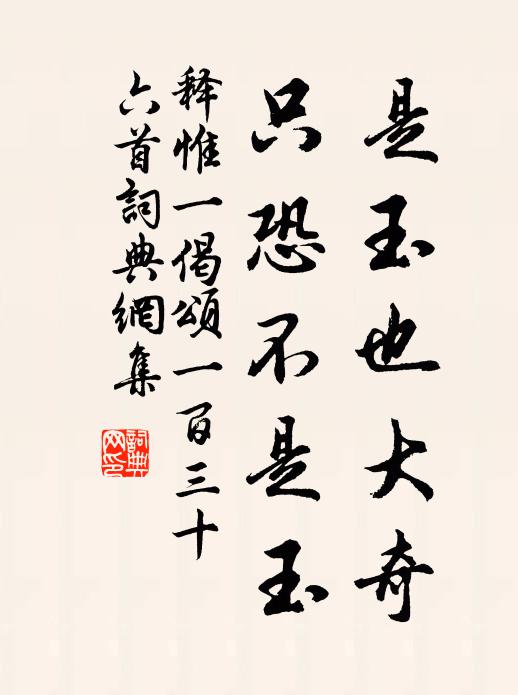 是玉也大奇
只恐不是玉
释惟一偈頌一百三十
六首詞典網集
詞典網印